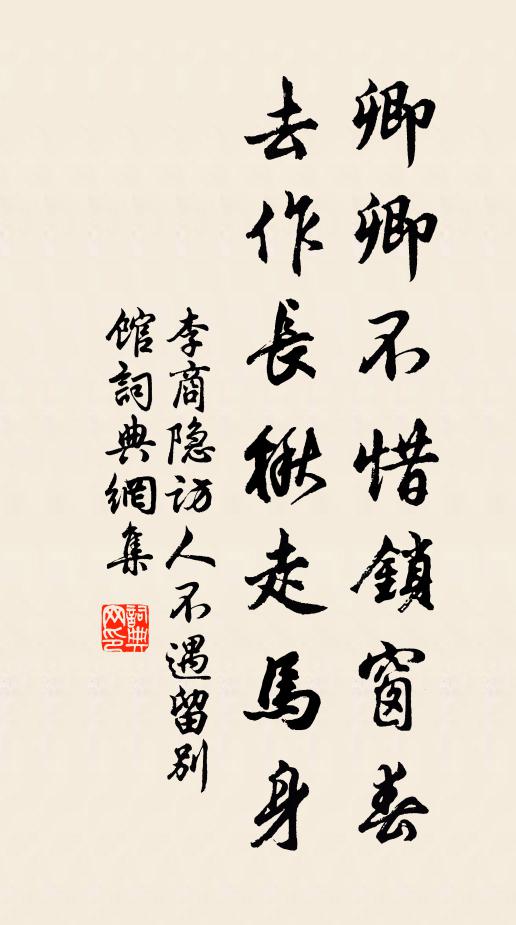 卿卿不惜鎖窗春
去作長楸走馬身
李商隐訪人不遇留別
館詞典網集
詞典
网印